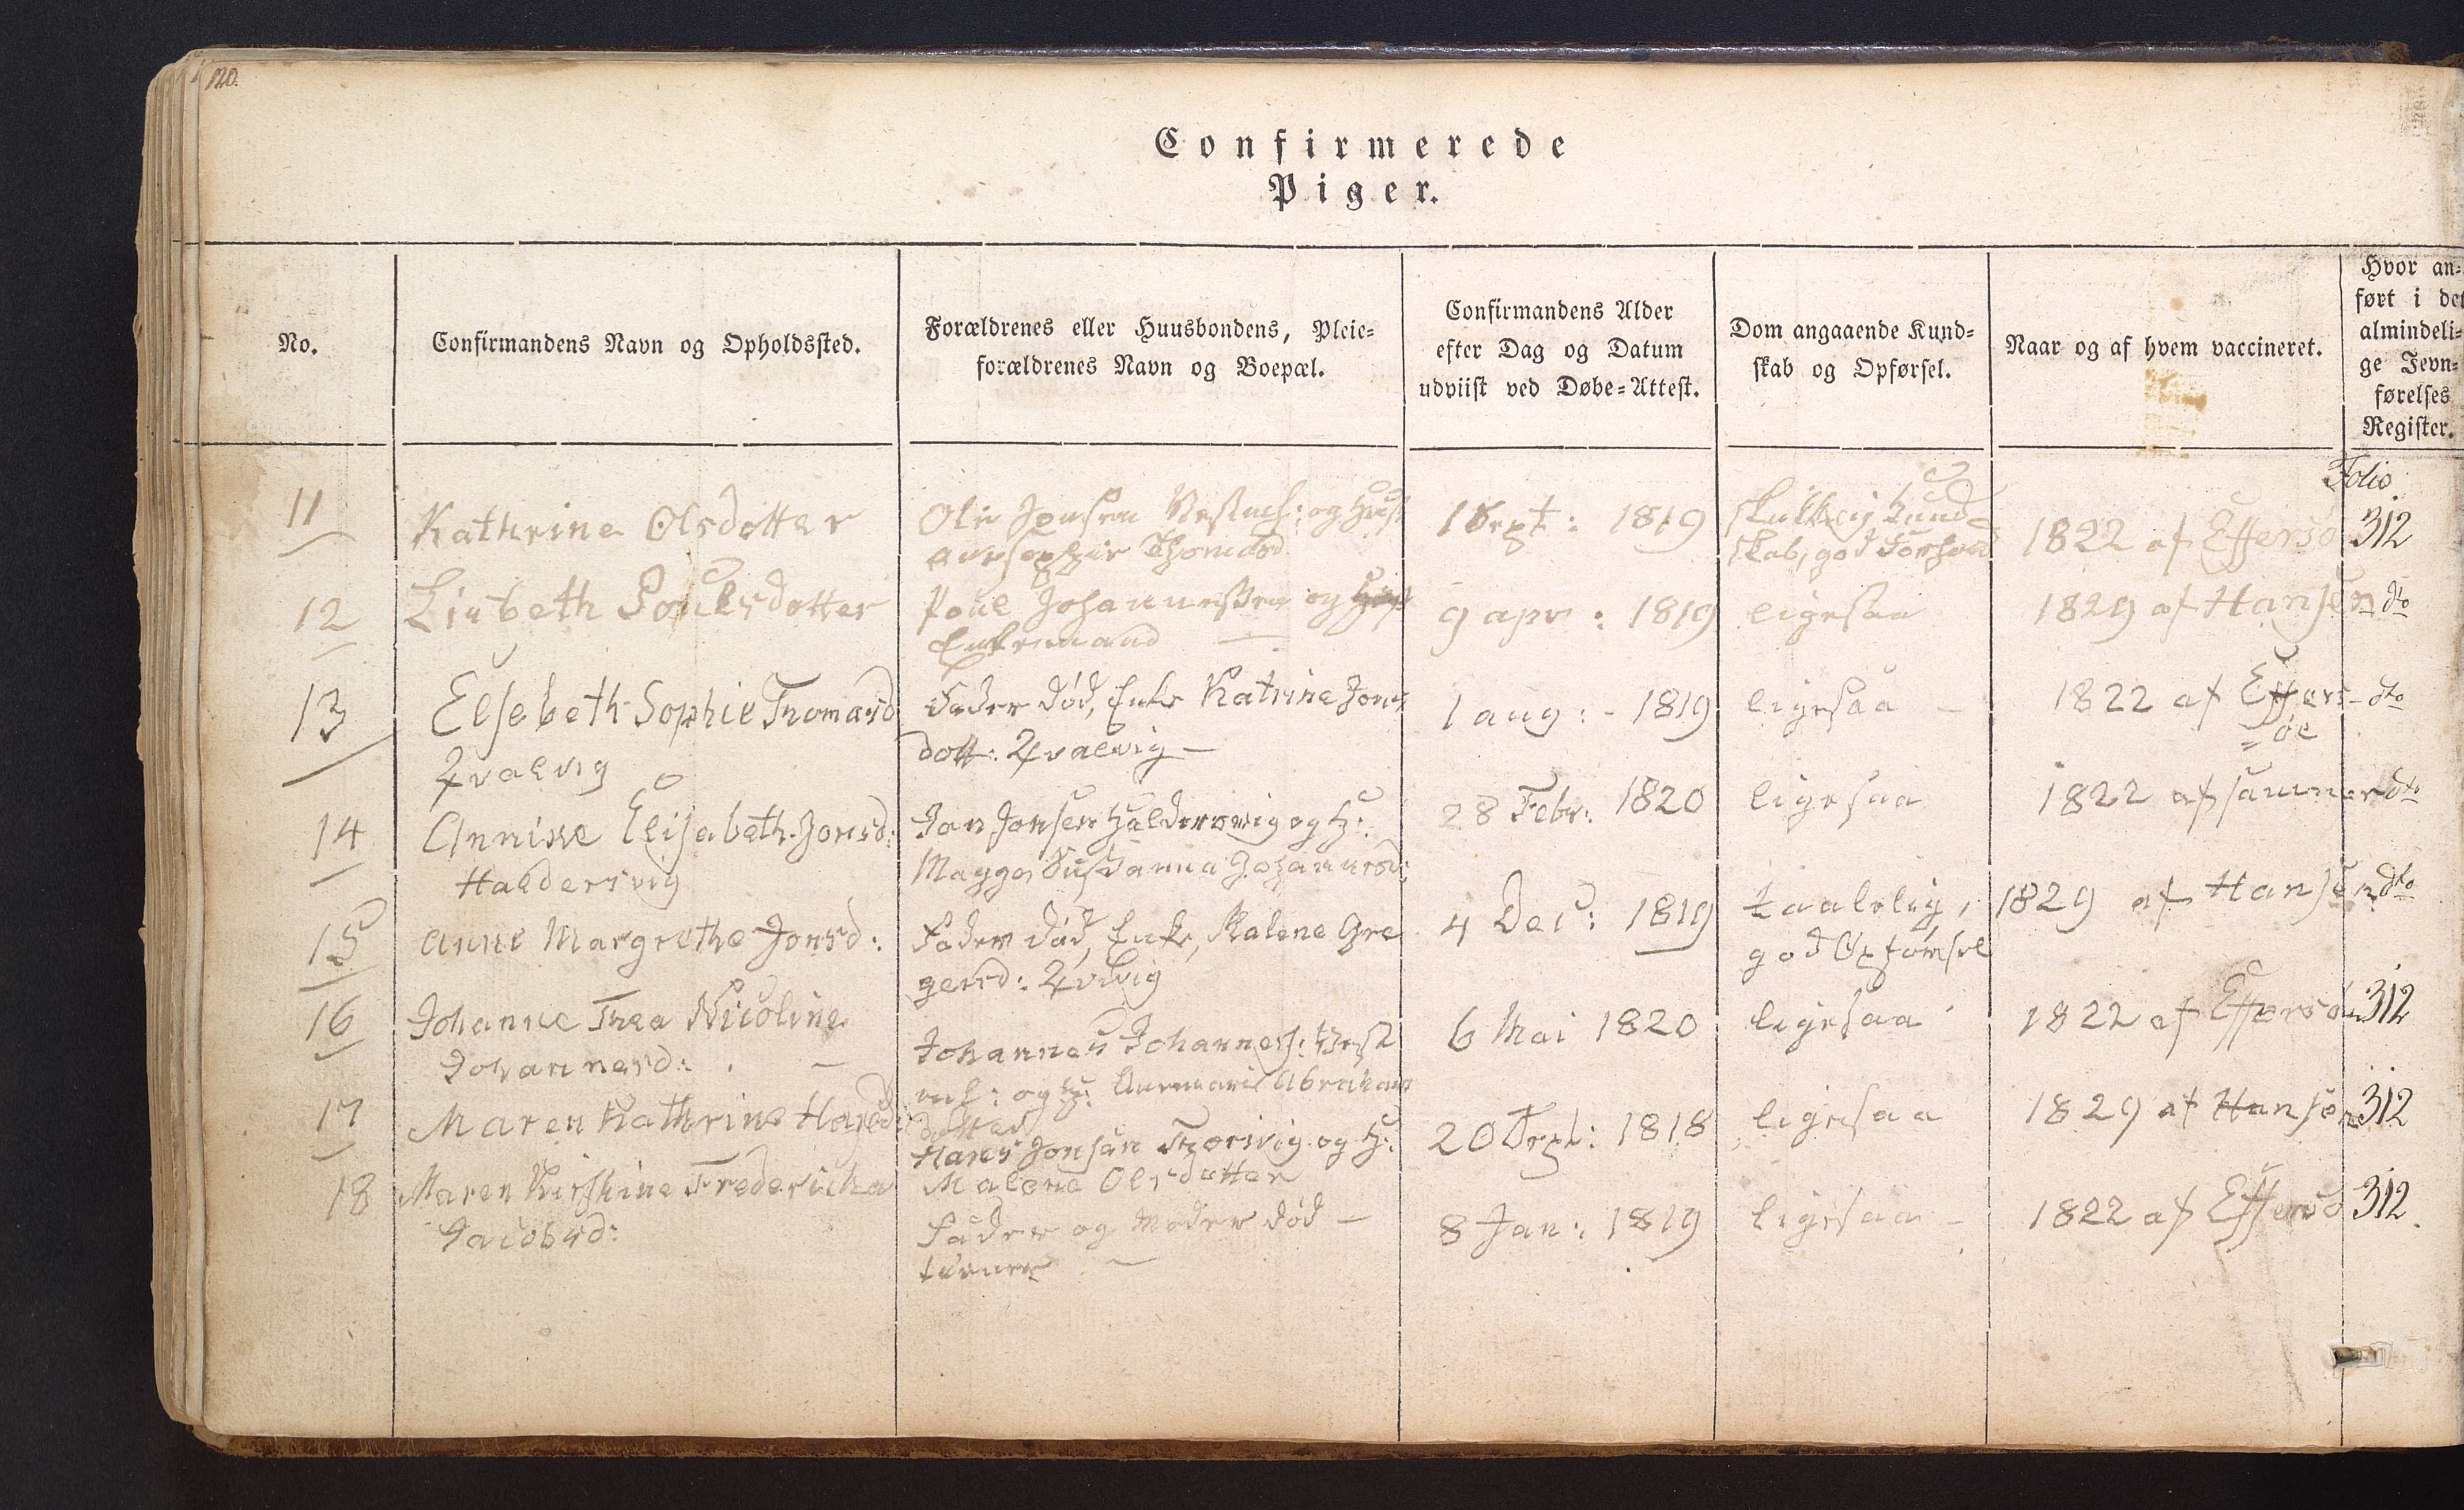 120.
Confirmerede
Piger.
No.
Confirmandens Navn og Opholdssted.
Forældrenes eller Huusbondens, Pleie=
forældrenes Navn og Boepæl.
Confirmandens Alder
efter Dag og Datum
udviist ved Døbe=Attest.
Dom angaaende Kund=
skab og Opførsel.
Naar og af hvem vaccineret.
Hvor an=
ført i det
almindeli=
ge Jevn=
førelses
Register.
Folio
11
Kathrine Olsdotter
Ole Jensen og
1 Sept: 1819
Kund=
skab, god Forhold
1822 af Effersö
312
12
Lisbeth Poulsdotter
Poul Johannessen og
Enkemand —
9 apr: 1819
ligesaa
1829 af Hansen
dto
13
Elsebeth Sophie Thomasd
Qvalvig
Fader död, Enke Katrine Jons
dott: Qvalvig —
1 aug: - 1819
ligesaa —
1822 af Effers-
=öe
dto
14
Annine Elisabeth Jonsd:
Haldersvig
Jon Jonsen Haldersvig og H:
Magga Susanna Johannesd:
28 Febr: 1820
ligesaa
1822 af samme
dto
15
Anne Margrethe Jonsd:
Fader död, Enke, Malene Gre
gersd: Qvlvig
4 Dec: 1819
taalelig,
god Opförsel
1829 af Hansen
dto
16
Johanne Thea Nicoline
Johannesd: —
Johannes Johannes: Vest
og H: Annemarie Abrahams
dotter
6 Mai 1820
ligesaa
1822 af Effersö
312
17
Maren Kathrine Hansd:
Hans Jonsen og H:
Malene Olsdotter
20 Sept: 1818
ligesaa
1829 af Hansen
312
18
Maren Kirstine Fredericka
Jacobsd:
Fader og Moder död —
8 Jan: 1819
ligesaa —
1822 af Effersö
312.